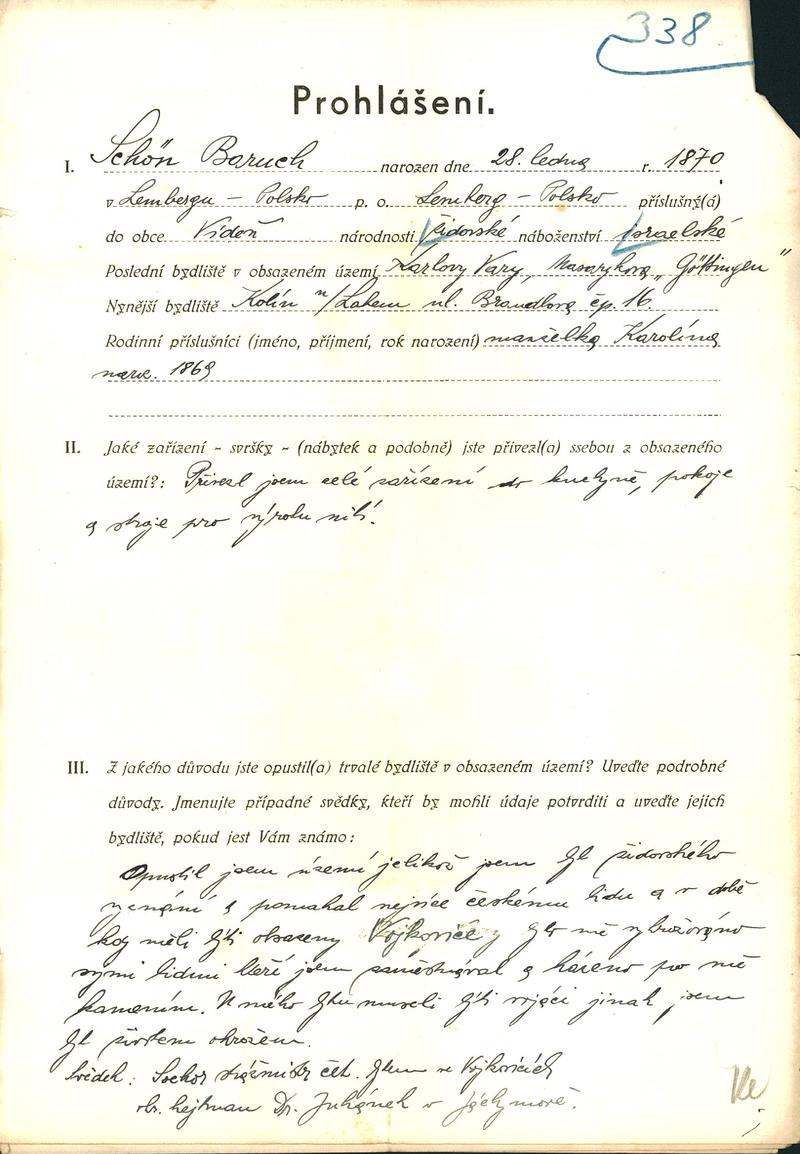 338
Prohlášení.
I. Schön Baruch narozen dne 28. ledna r. 1870
v Lembergu – Polsko p. o. Lemberg – Polsko příslušný(á)
do obce Vídeň národnosti židovské náboženství israelské
Poslední bydliště v obsazeném území Karlovy Vary, Masarykova „Göttingen"
Nynější bydliště Kolín n/Labem ul. Brandlova čp. 16.
Rodinní příslušníci (jméno, příjmení, rok narození) manželka Karolina
naroz. 1869
II. Jaké zařízení - svršky - (nábytek a podobně) jste přivezl(a) ssebou z obsazeného
území?: Přivezl jsem celé zařízení do kuchyně, pokoje
a stroje pro výrobu nití.
III. Z jakého důvodu jste opustil(a) trvalé bydliště v obsazeném území? Uveďte podrobné
důvody. Jmenujte případné svědky, kteří by mohli údaje potvrditi a uveďte jejich
bydliště, pokud jest Vám známo:
Opustil jsem území jelikož jsem byl židovského
vyznání a pomahal nejvíce českému lidu a v době
kdy měli býti obsazeny Vojkovice, bylo mě vyhrožováno
svými lidmi které jsem zaměstnával a házeno po mě
kamením. U mého bytu museli býti vojáci jinak jsem
byl životem ohrožen.
Svědek: Sochor strážmistr čet. bytem ve Vojkovicích
okr. hejtman Dr. v Jáchymově.